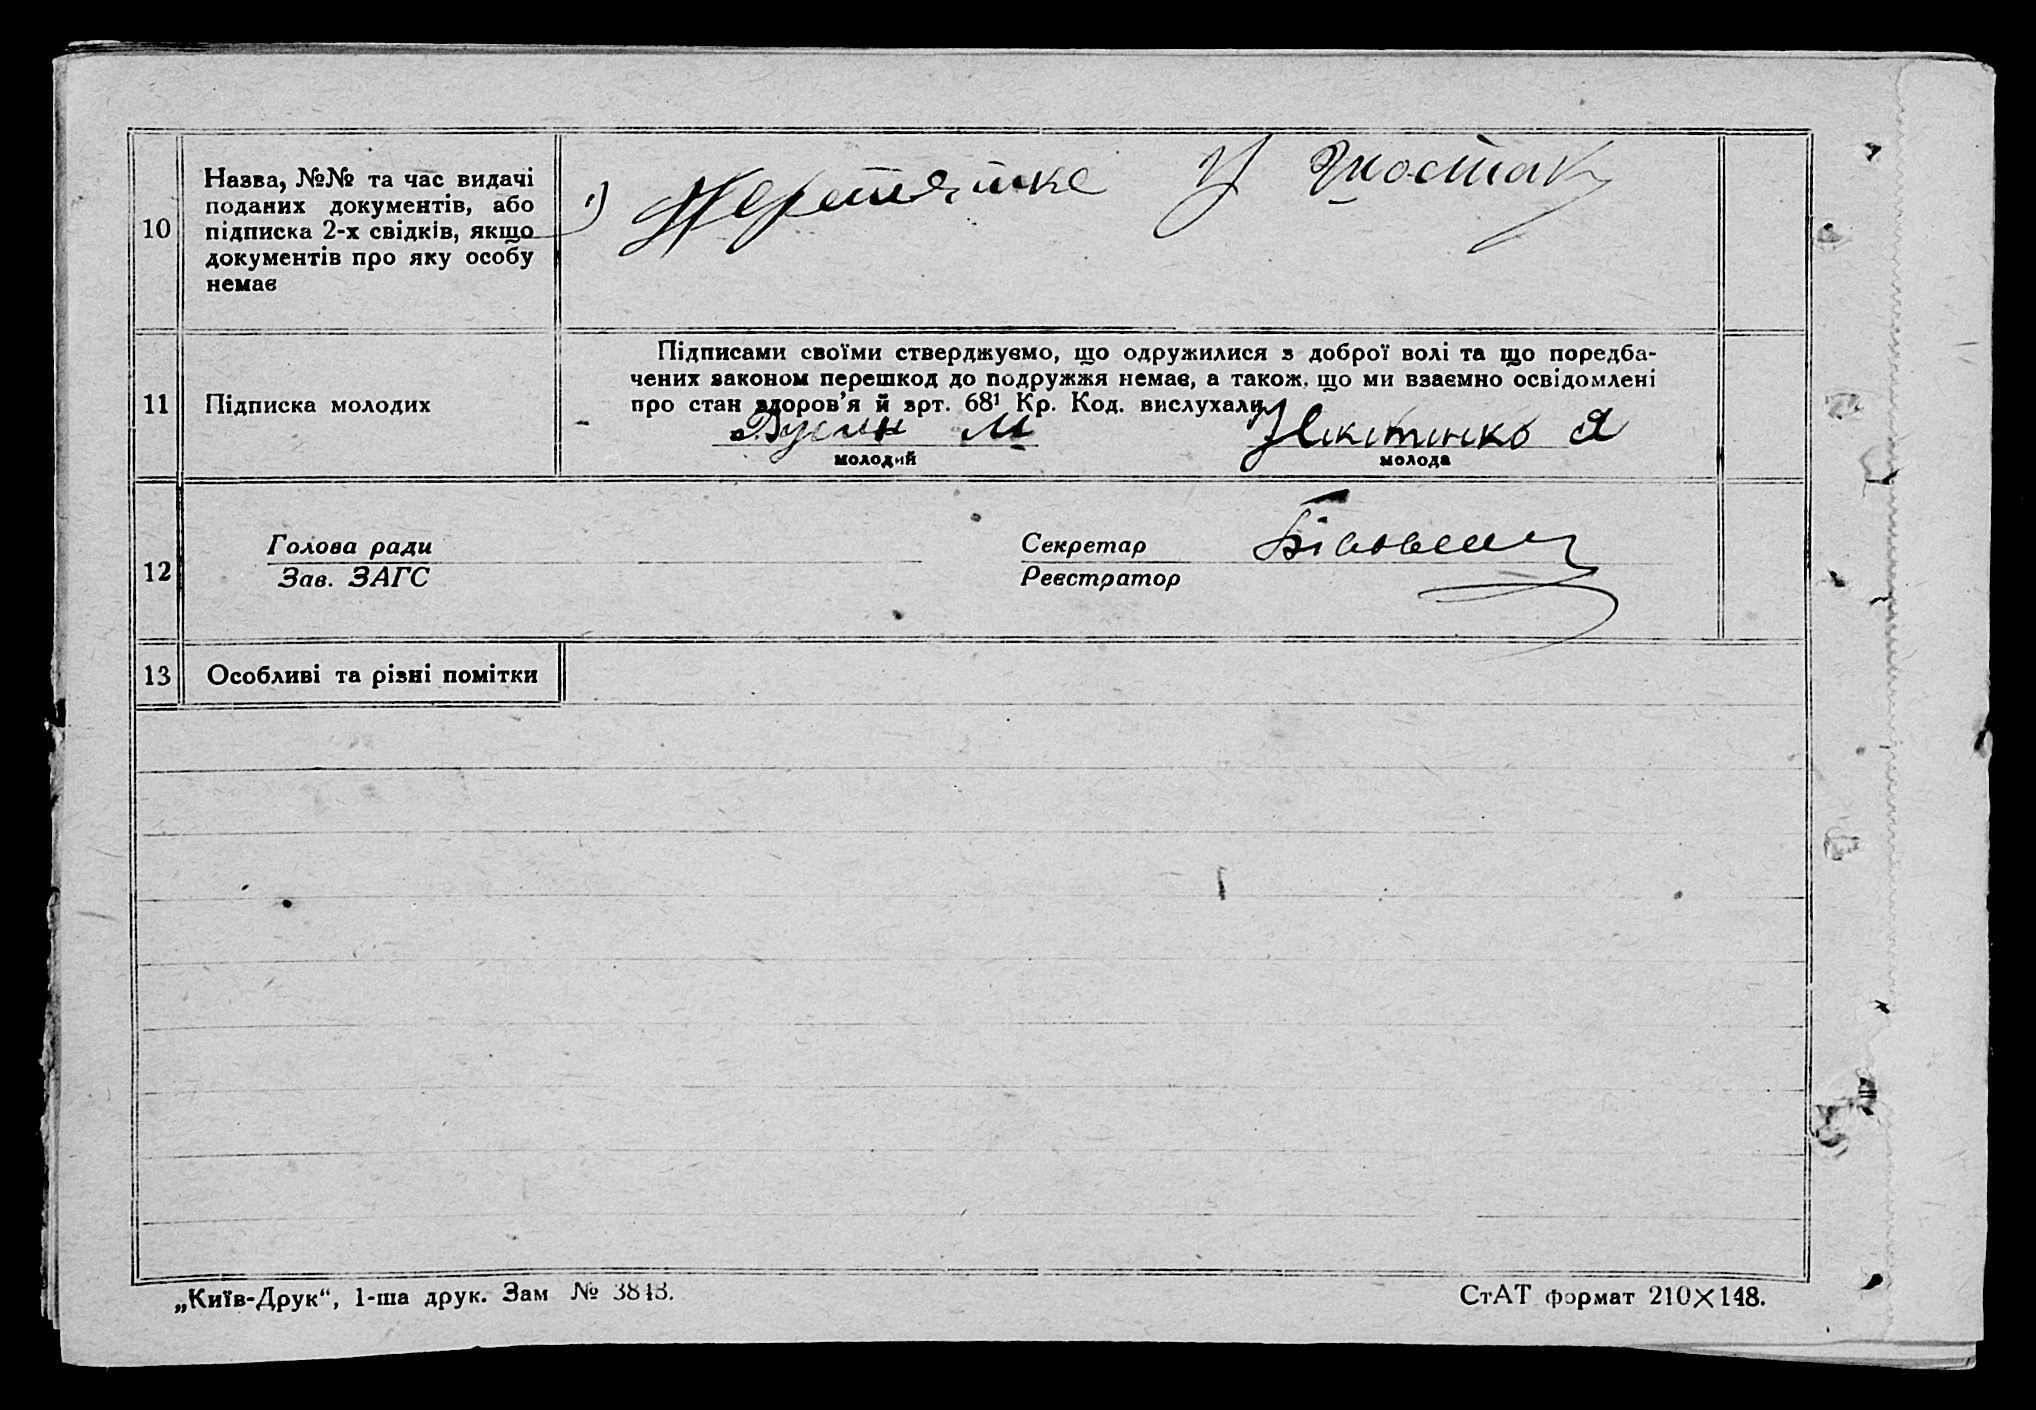 10
Назва, №№ та час видачі
поданих документів, або
підписка 2-х свідків, якщо
документів про яку особу
немає
1)
11
Підписка молодих
Підписами своїми стверджуємо, що одружилися з доброї волі та що поредба-
чених законом перешкод до подружжя немає, а також, що ми взаємно освідомлені
про стан здоров'я й арт. 68¹ Кр. Код. вислухали
Русин М
молодий
Нікітінко Я
молода
12
Голова ради
Зав. ЗАГС
Секретар
Реєстратор
13
Особливі та різні помітки
„Київ-Друк“, 1-ша друк. Зам № 3843.
СтАТ формат 210×148.